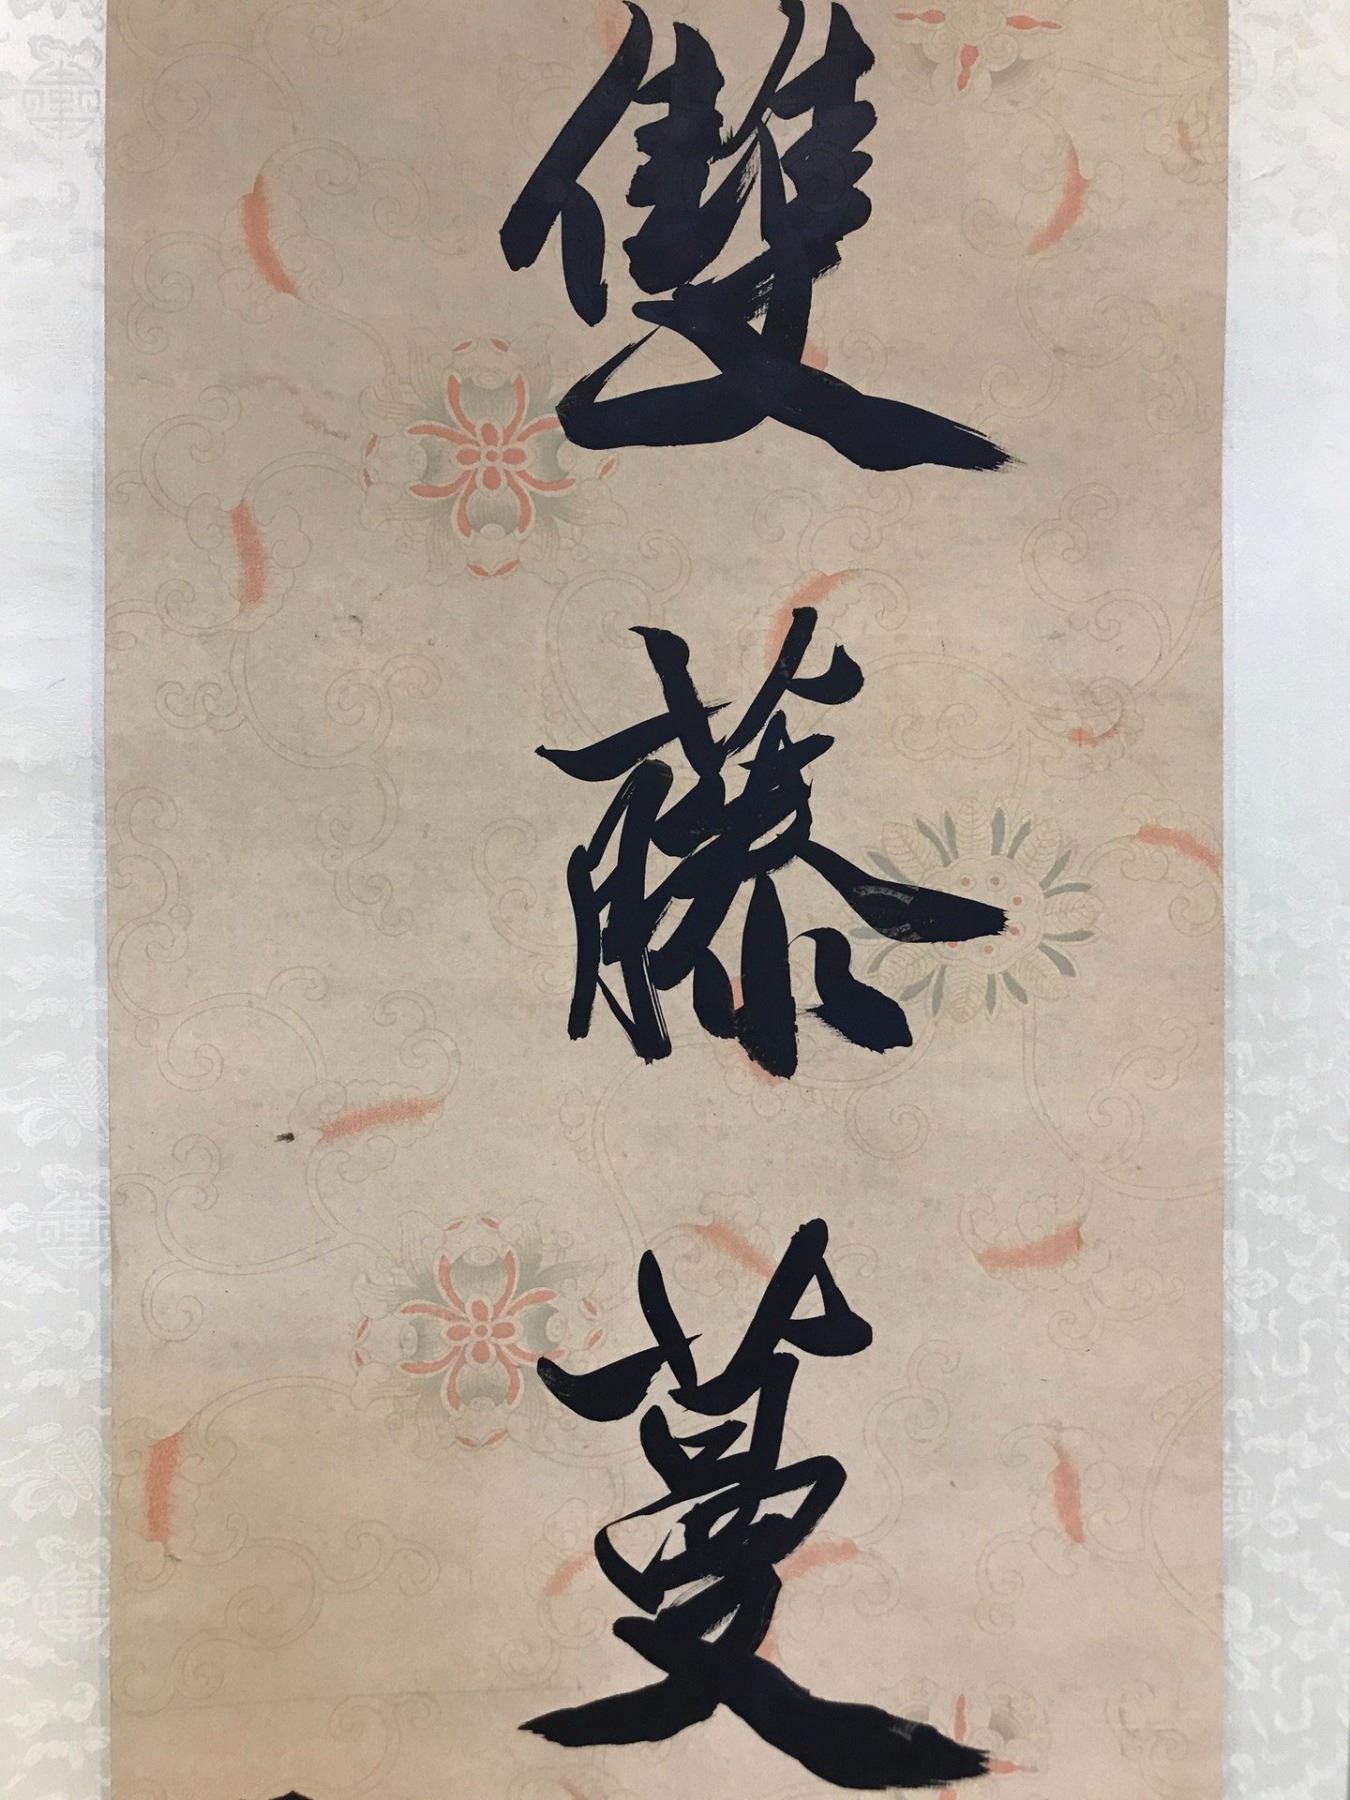 雙藤蔓